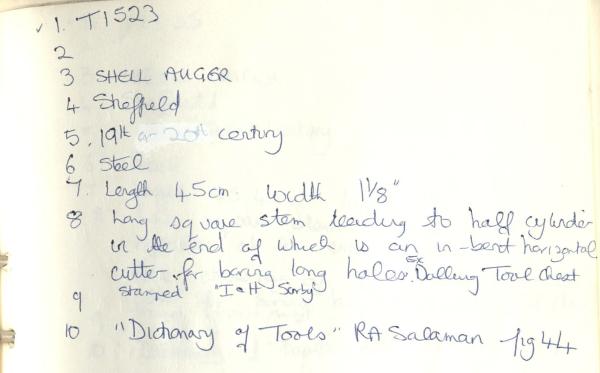 ✓ 1. T1523
2
3 SHELL AUGER
4 Sheffield
5. 19th or 20th century
6 Steel
7. Length 45cm. Width 1 1/8"
8 Long square stem leading to half cylinder
in the end of which is an in-bent horizontal
cutter, for boring long holes. Ex Dalling Tool Chest
9 Stamped "I & H Sorby"
10 "Dictionary of Tools" RA Salaman fig 44